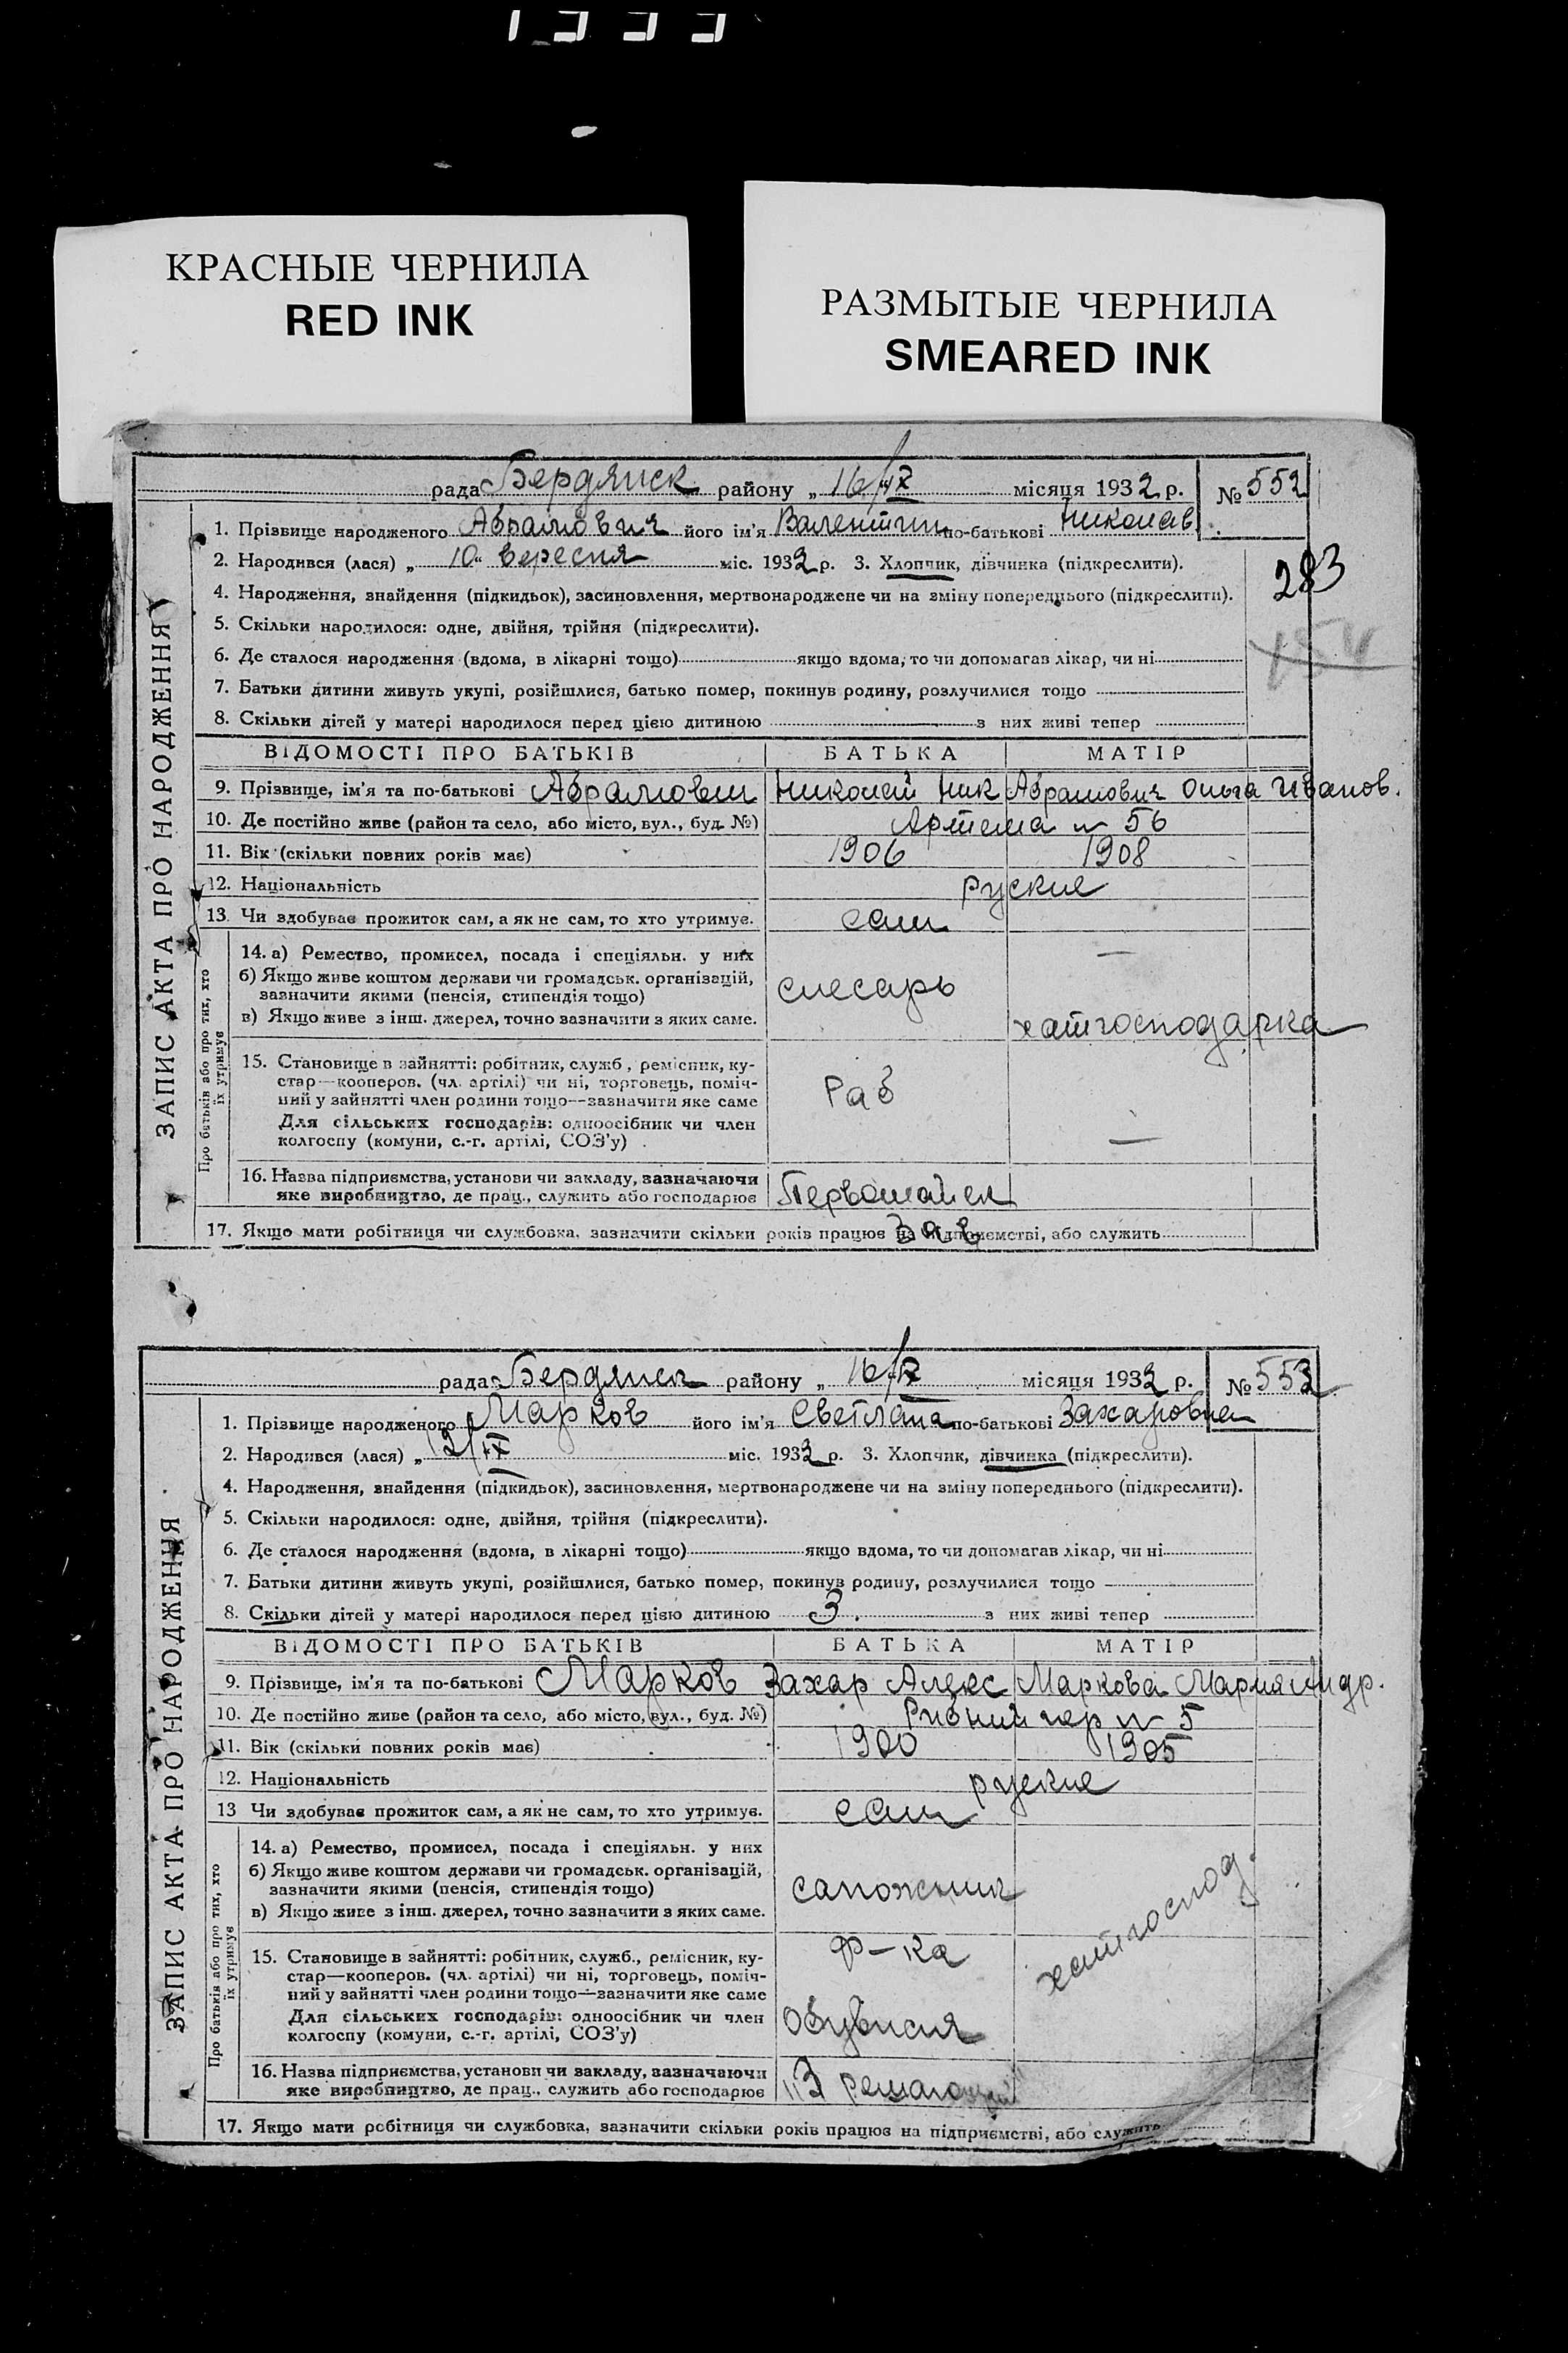 КРАСНЫЕ ЧЕРНИЛА
RED INK
РАЗМЫТЫЕ ЧЕРНИЛА
SMEARED INK
рада Бердянск району „ 16/IX місяця 1932 р. № 552
1. Прізвище народженого Абрамович його ім'я Валентин по-батькові Николаев
2. Народився (лася) „ 10 “ вересня міс. 1932 р. 3. Хлопчик, дівчинка (підкреслити).
283
4. Народження, знайдення (підкидьок), засиновлення, мертвонароджене чи на зміну попереднього (підкреслити).
5. Скільки народилося: одне, двійня, трійня (підкреслити).
6. Де сталося народження (вдома, в лікарні тощо) якщо вдома, то чи допомагав лікар, чи ні
7. Батьки дитини живуть укупі, розійшлися, батько помер, покинув родину, розлучилися тощо
8. Скільки дітей у матері народилося перед цією дитиною з них живі тепер
ВІДОМОСТІ ПРО БАТЬКІВ БАТЬКА МАТІР
9. Прізвище, ім'я та по-батькові Абрамович Николай Ник Абрамович Ольга Иванов.
10. Де постійно живе (район та село, або місто, вул., буд. №) Артема № 56
11. Вік (скільки повних років має) 1906 1908
12. Національність руские
13. Чи здобуває прожиток сам, а як не сам, то хто утримує. сам
14. а) Ремество, промисел, посада і спеціяльн. у них —
б) Якщо живе коштом держави чи громадськ. організацій,
зазначити якими (пенсія, стипендія тощо) слесарь
в) Якщо живе з інш. джерел, точно зазначити з яких саме. хатгосподарка
15. Становище в зайнятті: робітник, служб, ремісник, ку-
стар—кооперов. (чл. артілі) чи ні, торговець, поміч-
ний у зайнятті член родини тощо—зазначити яке саме Раб
Для сільських господарів: одноосібник чи член
колгоспу (комуни, с.-г. артілі, СОЗ'у) —
16. Назва підприємства, установи чи закладу, зазначаючи
яке виробництво, де прац., служить або господарює Первомайск
17. Якщо мати робітниця чи службовка, зазначити скільки років працює на підприємстві, або служить зав
ЗАПИС АКТА ПРО НАРОДЖЕННЯ
Про батьків або про тих, хто
їх утримує
рада Бердянск району „ 16/IX місяця 1932 р. № 553
1. Прізвище народженого Марков його ім'я Светлана по-батькові Захаровна
2. Народився (лася) „ 12/IX міс. 1932 р. 3. Хлопчик, дівчинка (підкреслити).
4. Народження, знайдення (підкидьок), засиновлення, мертвонароджене чи на зміну попереднього (підкреслити).
5. Скільки народилося: одне, двійня, трійня (підкреслити).
6. Де сталося народження (вдома, в лікарні тощо) якщо вдома, то чи допомагав лікар, чи ні
7. Батьки дитини живуть укупі, розійшлися, батько помер, покинув родину, розлучилися тощо
8. Скільки дітей у матері народилося перед цією дитиною 3. з них живі тепер
ВІДОМОСТІ ПРО БАТЬКІВ БАТЬКА МАТІР
9. Прізвище, ім'я та по-батькові Марков Захар Алекс Маркова Мария Андр.
10. Де постійно живе (район та село, або місто, вул., буд. №) № 5
11. Вік (скільки повних років має) 1900 1905
12. Національність руские
13 Чи здобуває прожиток сам, а як не сам, то хто утримує. сам
14. а) Ремество, промисел, посада і спеціяльн. у них
б) Якщо живе коштом держави чи громадськ. організацій,
зазначити якими (пенсія, стипендія тощо) сапожник
в) Якщо живе з інш. джерел, точно зазначити з яких саме. хатгоспод.
15. Становище в зайнятті: робітник, служб., ремісник, ку- Ф-ка
стар—кооперов. (чл. артілі) чи ні, торговець, поміч-
ний у зайнятті член родини тощо—зазначити яке саме
Для сільських господарів: одноосібник чи член
колгоспу (комуни, с.-г. артілі, СОЗ'у)
16. Назва підприємства, установи чи закладу, зазначаючи
яке виробництво, де прац., служить або господарює „3
17. Якщо мати робітниця чи службовка, зазначити скільки років працює на підприємстві, або служить
ЗАПИС АКТА ПРО НАРОДЖЕННЯ
Про батьків або про тих, хто
їх утримує